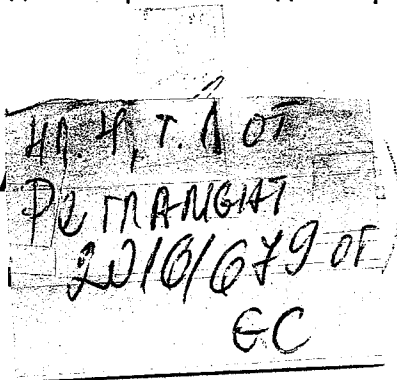 чл. 4, т. 1 от
регламент
2016/679 от
ЕС